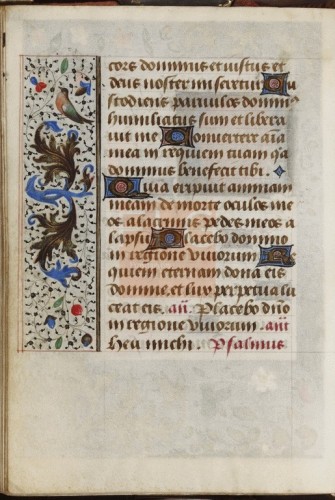 cors dominus et iustus et
deus noster miseretur Cu
stodiens paruulos domin⁹
humiliatus sum et libera
uit me Conuertere aīa
mea in requiem tuam q̄a
dominus benefecit tibi.
Quia eripuit animam
meam de morte oculos me
os a lacrimis pedes meos a
lapsu Placebo domino
in regione viuorum Re
quiem eternam dona eis
domine et lux perpetua lu
ceat eis. añ. Placebo dn̄o
in regione viuorum. añt
heu michi. Psalmus